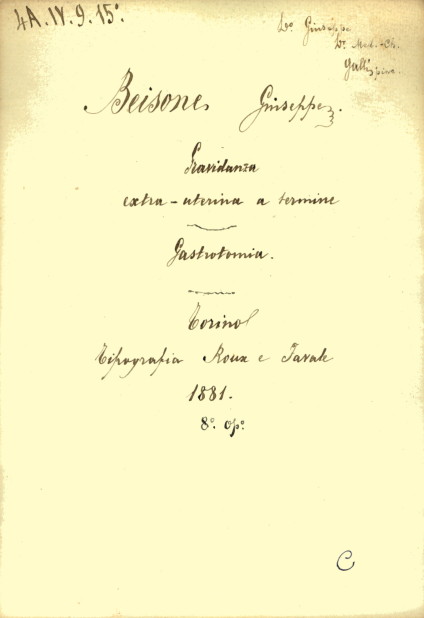 4A.IV.9.15º.
Dº Giuseppe
Dr. Med. - Ch.
Beisone Giuseppe.
Gravidanza
extra-uterina a termine
Gastrotomia.
Torino
Tipografia Roux e Favale
1881.
8º. opº.
C